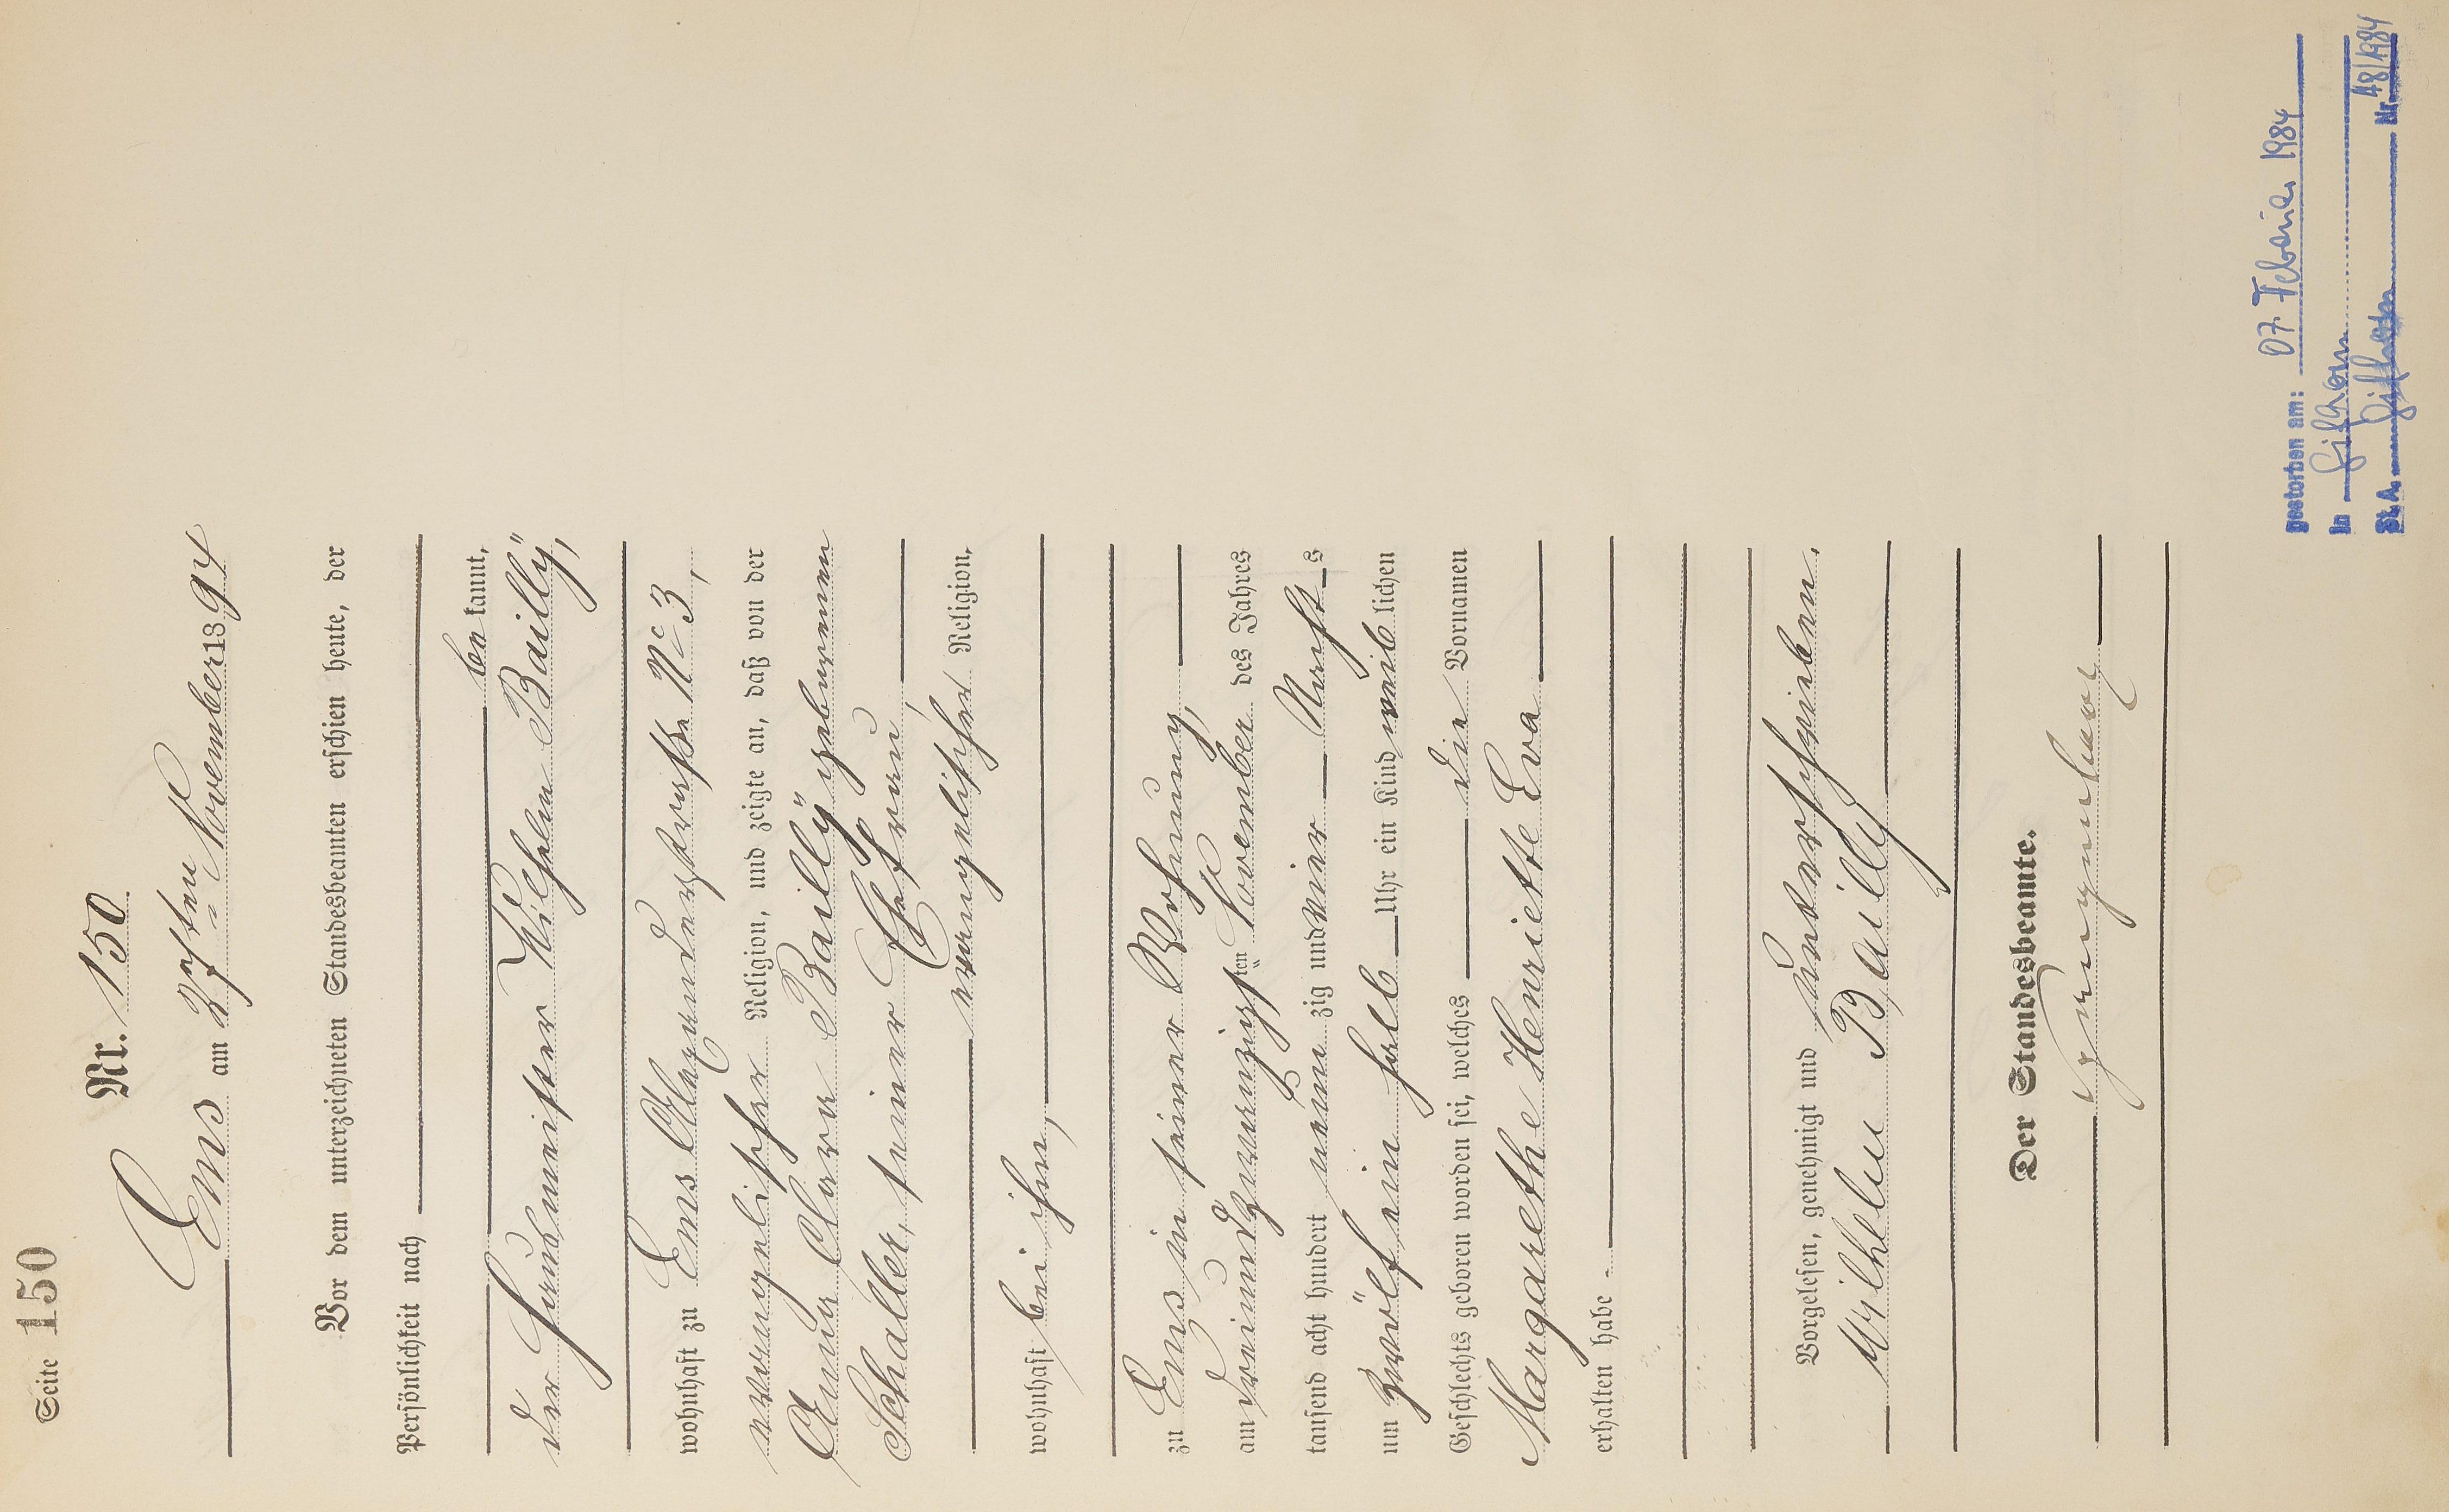 Seite 150
Nr. 150
Ems am 27sten November 1894
Vor dem unterzeichneten Standesbeamten erschien heute, der
Persönlichkeit nach
bekannt,
der Wilhelm Bailly,
wohnhaft zu Ems Alexanderstraße No 3,
evangelischer Religion, und zeigte an, daß von der
Anna Clara Bailly geborenen
Schaller, seiner Ehefrau,
evangelischer Religion,
wohnhaft bei ihm,
zu Ems in seiner Wohnung,
am dreiundzwanzigsten November des Jahres
tausend acht hundert neunzig und vier Nachts
um zwölf ein halb Uhr ein Kind weiblichen
Geschlechts geboren worden sei, welches die Vornamen
Margarethe Henriette Eva
erhalten habe.
Vorgelesen, genehmigt und unterschrieben.
Wilhelm Bailly
Der Standesbeamte.
gestorben am: 07. Februar 1984
in Gifhorn
St. A. Gifhorn Nr. 48/1984